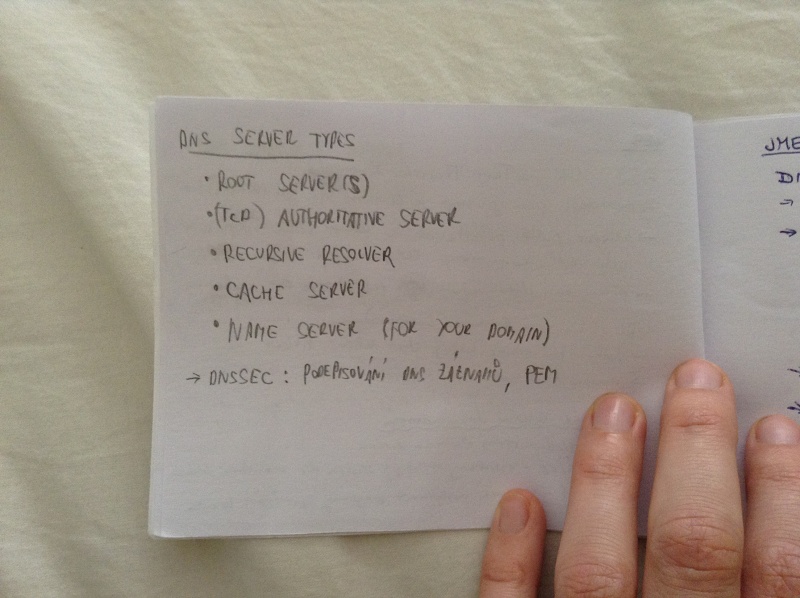 DNS SERVER TYPES
• ROOT SERVER(S)
• (TLD) AUTHORITATIVE SERVER
• RECURSIVE RESOLVER
• CACHE SERVER
• NAME SERVER (FOR YOUR DOMAIN)
→ DNSSEC: PODEPISOVÁNÍ DNS ZÁZNAMŮ, PEM
JME